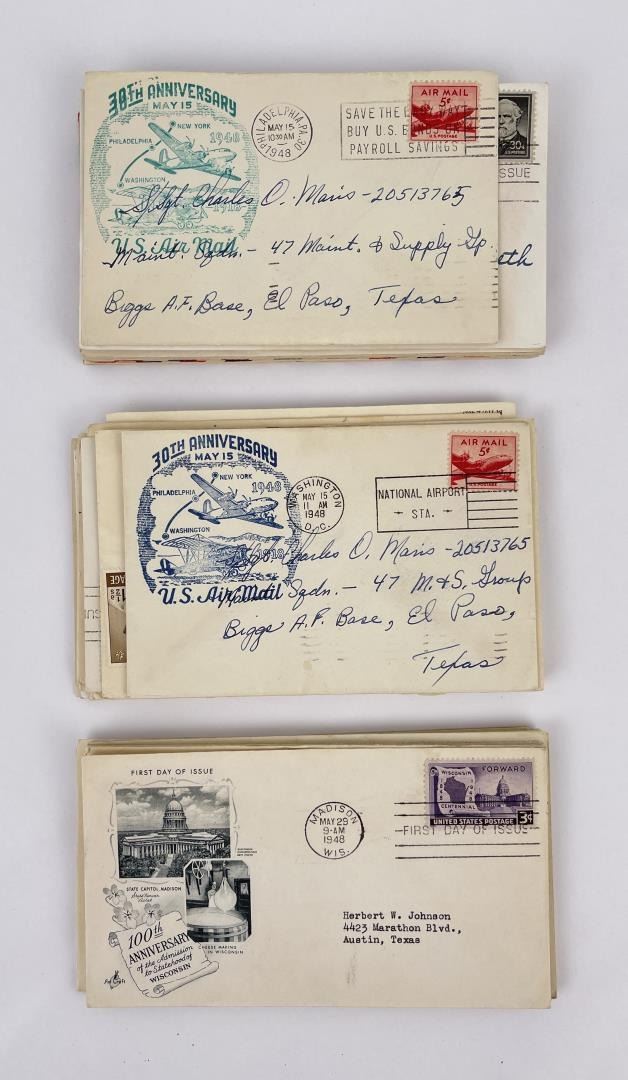 30TH ANNIVERSARY
MAY 15
NEW YORK
PHILADELPHIA
1948
WASHINGTON
1918
U.S. Air Mail
PHILADELPHIA, PA.
MAY 15
10:30 AM
1948
SAVE THE
BUY U.S.
PAYROLL SAVINGS
AIR MAIL
5¢
U.S. POSTAGE
30¢
ISSUE
S/Sgt. Charles O. Maris - 20513765
Maint. Sqdn. - 47 Maint. & Supply Gp.
Biggs A.F. Base, El Paso, Texas
30TH ANNIVERSARY
MAY 15
NEW YORK
PHILADELPHIA
1948
WASHINGTON
1918
U.S. Air Mail
WASHINGTON
MAY 15
11 AM
1948
D.C.
NATIONAL AIRPORT
- STA. -
AIR MAIL
5¢
U.S. POSTAGE
Charles O. Maris - 20513765
Sqdn. - 47 M. & S. Group
Biggs A.F. Base, El Paso,
Texas
FIRST DAY OF ISSUE
STATE CAPITOL, MADISON
CHEESE MAKING
IN WISCONSIN
100th
ANNIVERSARY
of the Admission
to Statehood of
WISCONSIN
Art Craft
MADISON
MAY 29
9-AM
1948
WIS.
FIRST DAY OF ISSUE
WISCONSIN
FORWARD
1848
1948
CENTENNIAL
UNITED STATES POSTAGE 3¢
Herbert W. Johnson
4423 Marathon Blvd.,
Austin, Texas